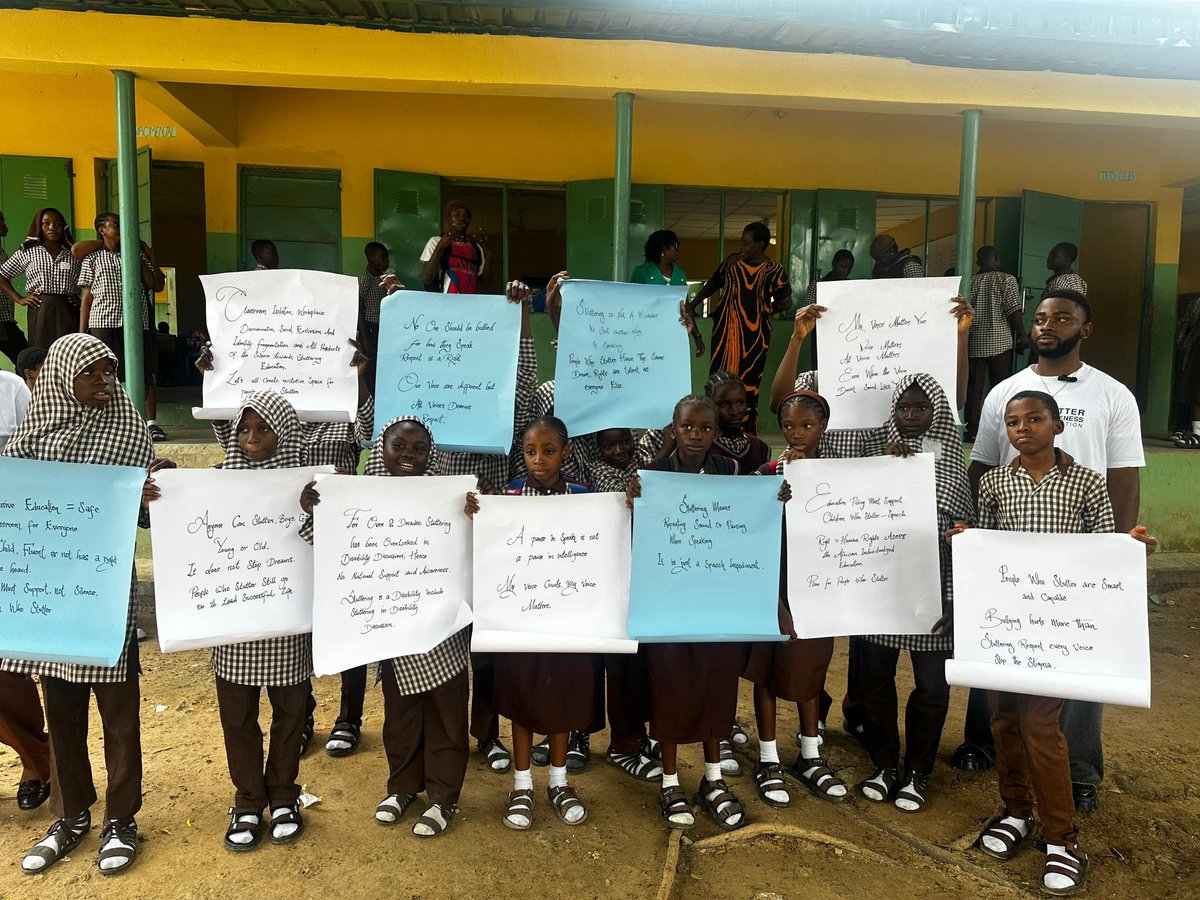 Classroom Isolation, Workplace
Discrimination, Social Exclusion And
Identity fragmentation and All Products
of the Silence towards Stuttering
Education.
Let's all create inclusive Space for
people Stutter
No One Should be bullied
for how they Speak
Respect is a Right
Our Voice are different but
All Voices Deserves
Respect.
Stuttering is Not A
its Just another way
of Speaking
People Who Stutter Have The Same
Dream, Rights are talent as
everyone Else.
My Voice Matters Your
Voice Matters
All Voice Matters.
Even When the Voice
Doesn't Sound Like
Education = Safe
Classroom for Everyone
Child, Fluent or not has a right
be heard.
Must Support, not Silence,
Who Stutter
Anyone Can Stutter, Boys,
Young or Old.
It does not Stop Dreams.
People Who Stutter Still go
on to Lead Successful Life.
For Over 2 Decades Stuttering
has been Overlooked in
Disability Discussions, Hence
No National Support and Awareness.
Stuttering is a Disability Include
Stuttering in Disability
Discussion.
A pause in Speech is not
a pause in intelligence
My Voice Counts, My Voice
Matters.
Stuttering Means
Repeating Sound or Pausing
When Speaking
It is just a Speech Impediment.
Education Policy Must Support
Children Who Stutter - Speech
Right = Human Rights Adopt
the African Individualized
Education
Plan for People Who Stutter
People Who Stutter are Smart
and Capable
Bullying hurts More than
Stuttering Respect every Voice
Stop the Stigma.